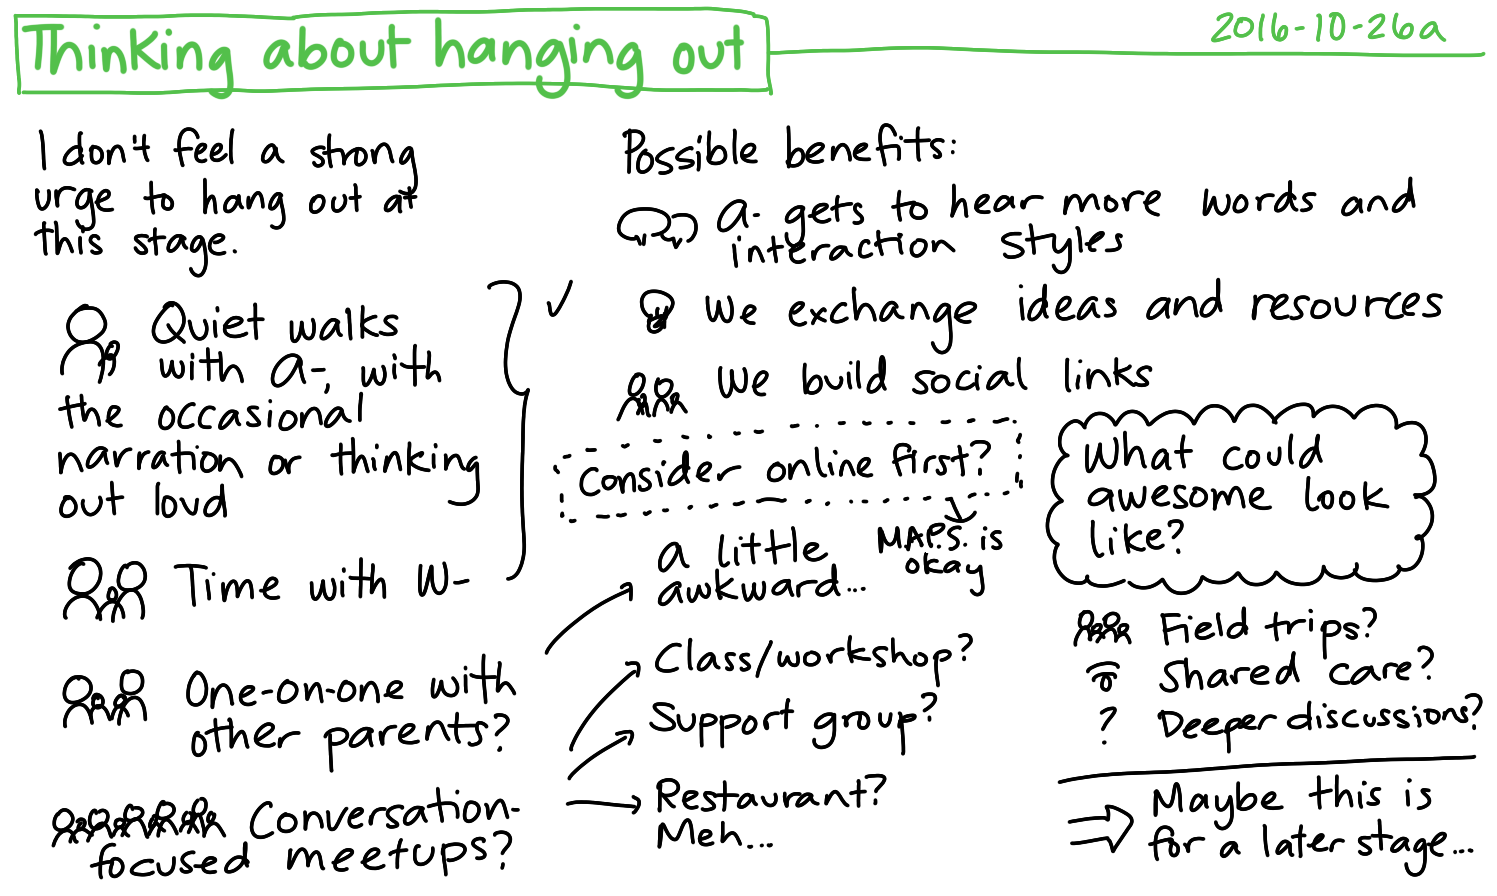 Thinking about hanging out
2016-10-26a
I don't feel a strong
urge to hang out at
this stage.
Quiet walks
with A-, with
the occasional
narration or thinking
out loud
Time with W-
One-on-one with
other parents?
Conversation-
focused meetups?
Possible benefits:
A- gets to hear more words and
interaction styles
We exchange ideas and resources
We build social links
Consider online first?
M.A.P.S. is
okay
a little
awkward...
Class/workshop?
Support group?
Restaurant?
Meh...
What could
awesome look
like?
Field trips?
Shared care?
? Deeper discussions?
Maybe this is
for a later stage...